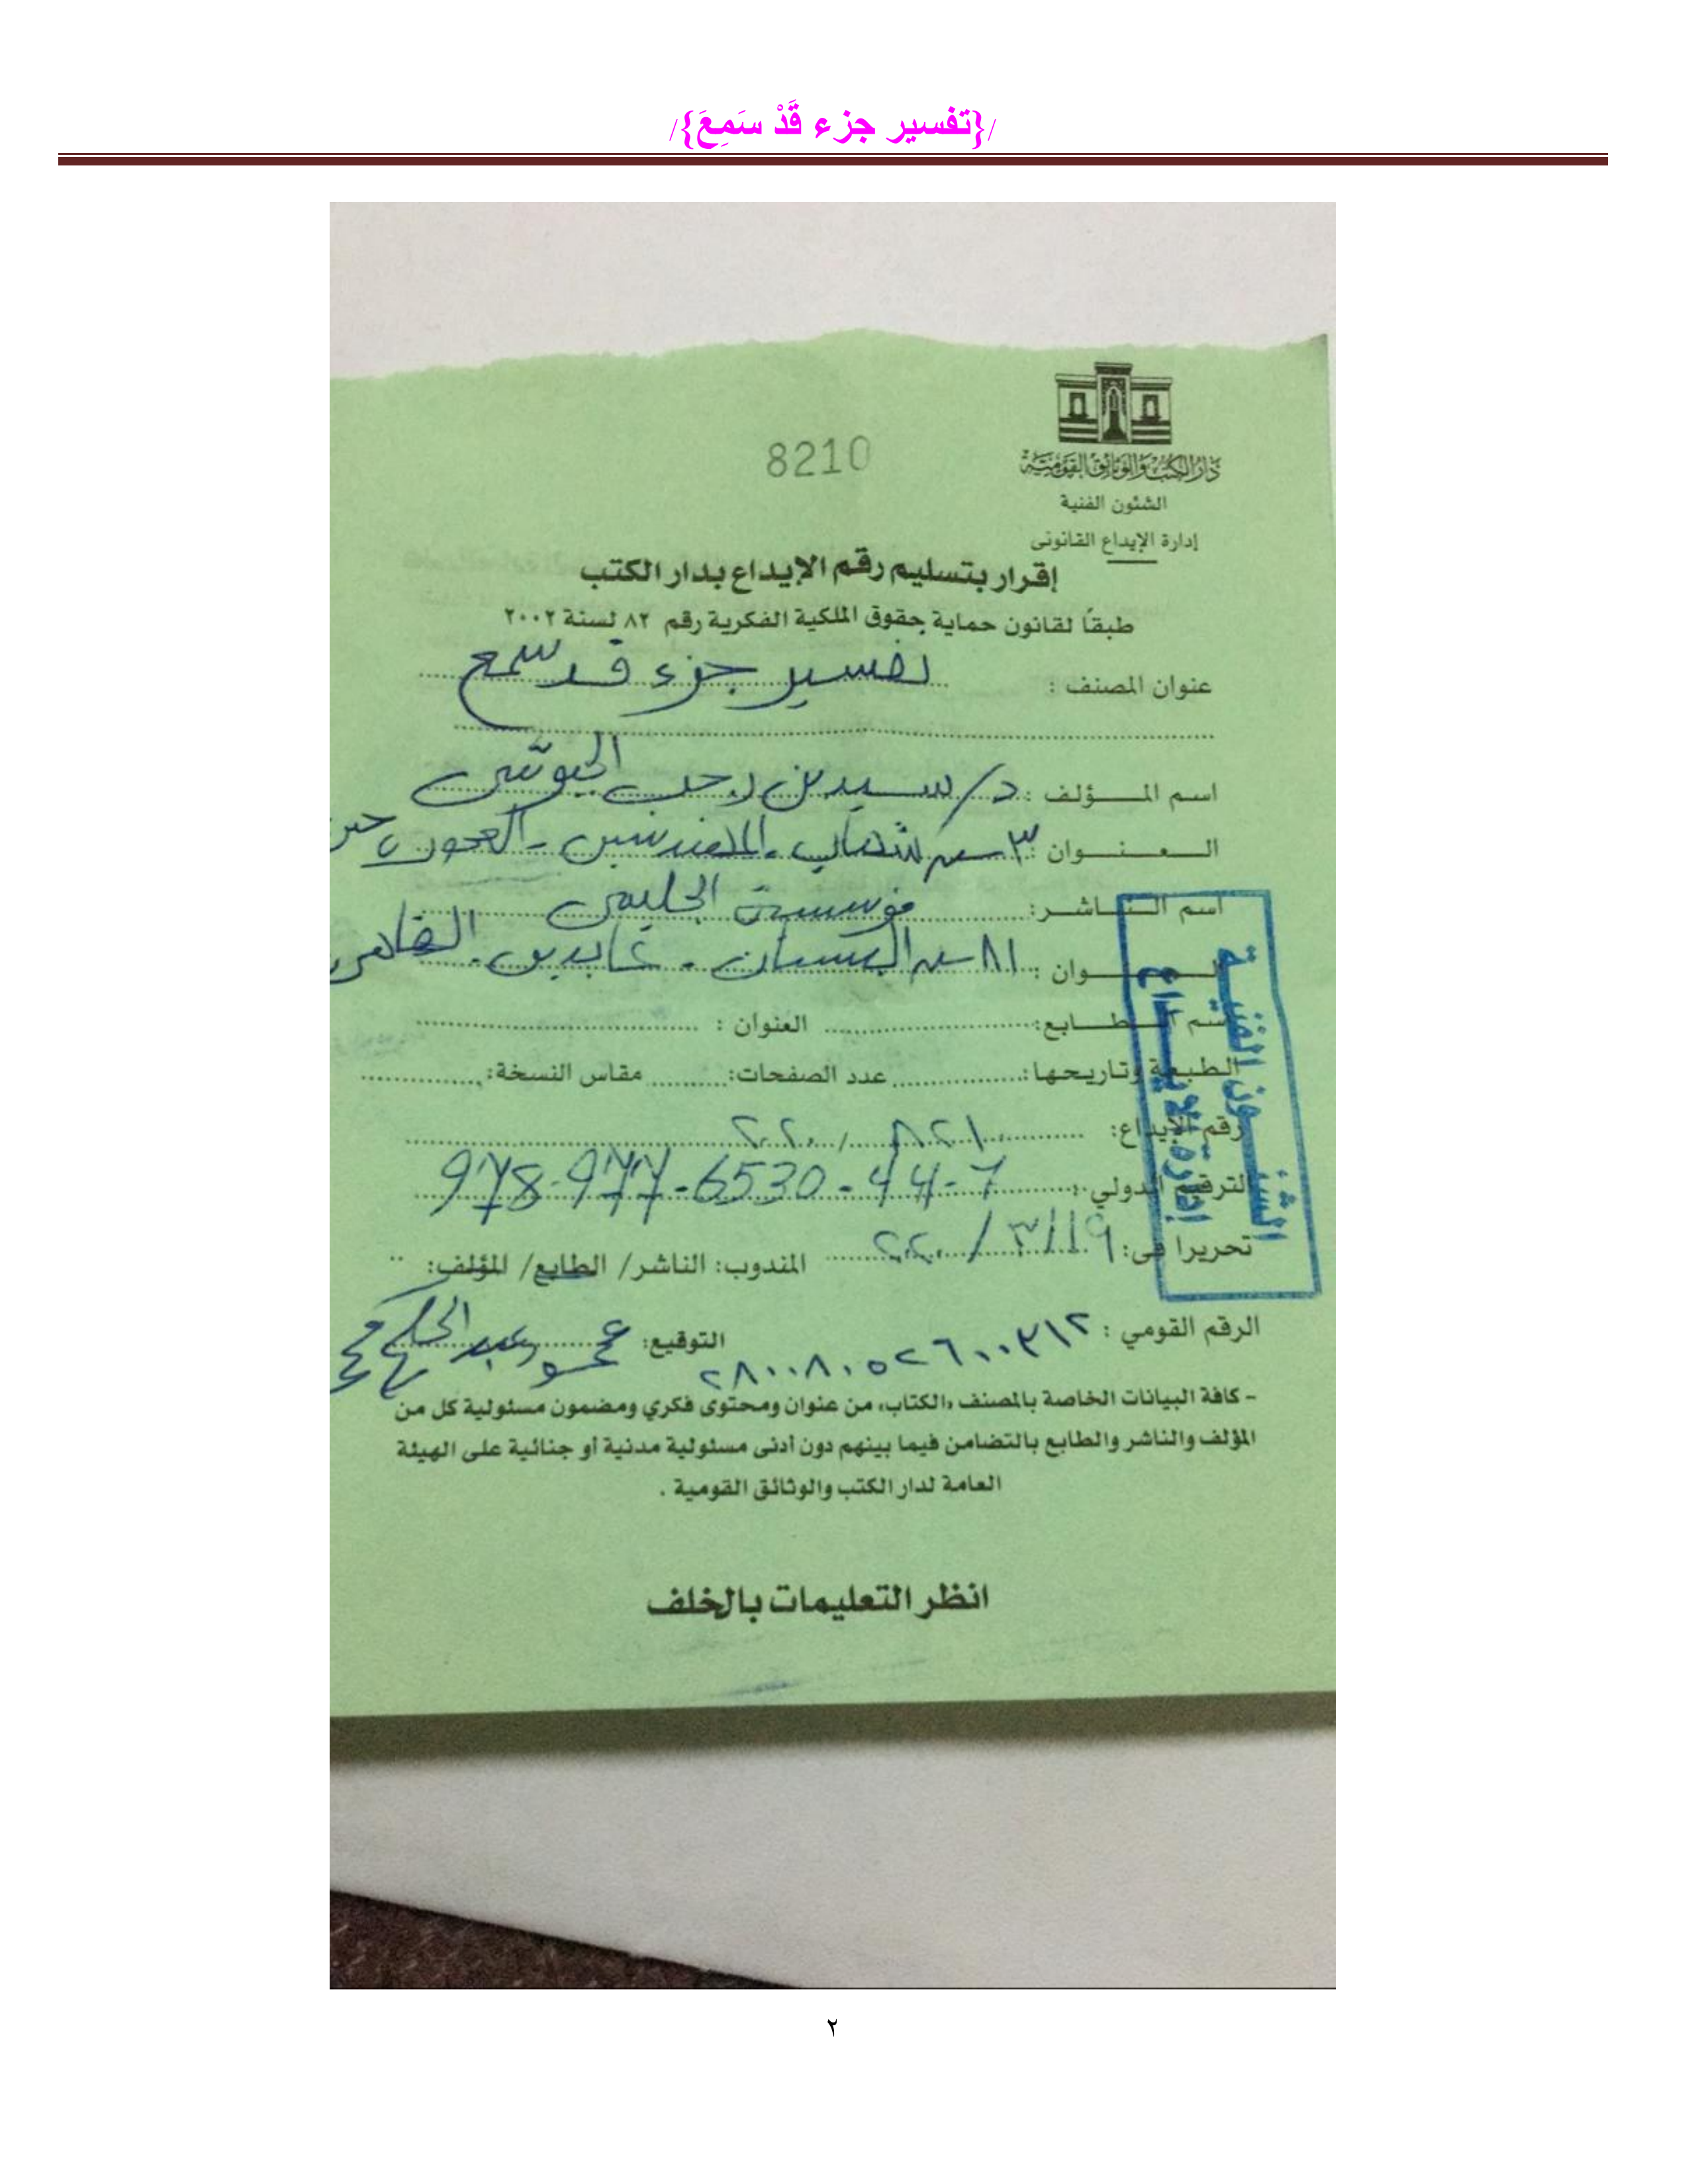 /{تفسير جزء قَدْ سَمِعَ}/
دار الكتب والوثائق القومية
8210
الشئون الفنية
إدارة الإيداع القانونى
إقرار بتسليم رقم الإيداع بدار الكتب
طبقاً لقانون حماية حقوق الملكية الفكرية رقم ٨٢ لسنة ٢٠٠٢
عنوان المصنف : تفسير جزء قد سمع
اسم المـــؤلف : د/ سيد بن رجب الجيوشى
الـــعـــنـــوان : ٣ ش شهاب - المهندسين - العجوزة
اسم النـــاشـــر: مؤسسة
العنـــوان : ٨١ ش البستان - عابدين - القاهرة
اسم الطـــابع: العنوان :
الطبعة وتاريخها: عدد الصفحات: مقاس النسخة:
رقم الإيداع: / ٢٠٢٠
الترقيم الدولي : 978-977-6530-44-7
تحريرا فى: ١٩/٣/٢٠٢٠ المندوب: الناشر/ الطابع/ المؤلف:
الرقم القومي : ٢٨٠٠٨٠٥٢٦٠٠٣١٢ التوقيع: محمود عبد
الشئون الفنية
إدارة الإيداع
- كافة البيانات الخاصة بالمصنف «الكتاب» من عنوان ومحتوى فكري ومضمون مسئولية كل من
المؤلف والناشر والطابع بالتضامن فيما بينهم دون أدنى مسئولية مدنية أو جنائية على الهيئة
العامة لدار الكتب والوثائق القومية .
انظر التعليمات بالخلف
٢